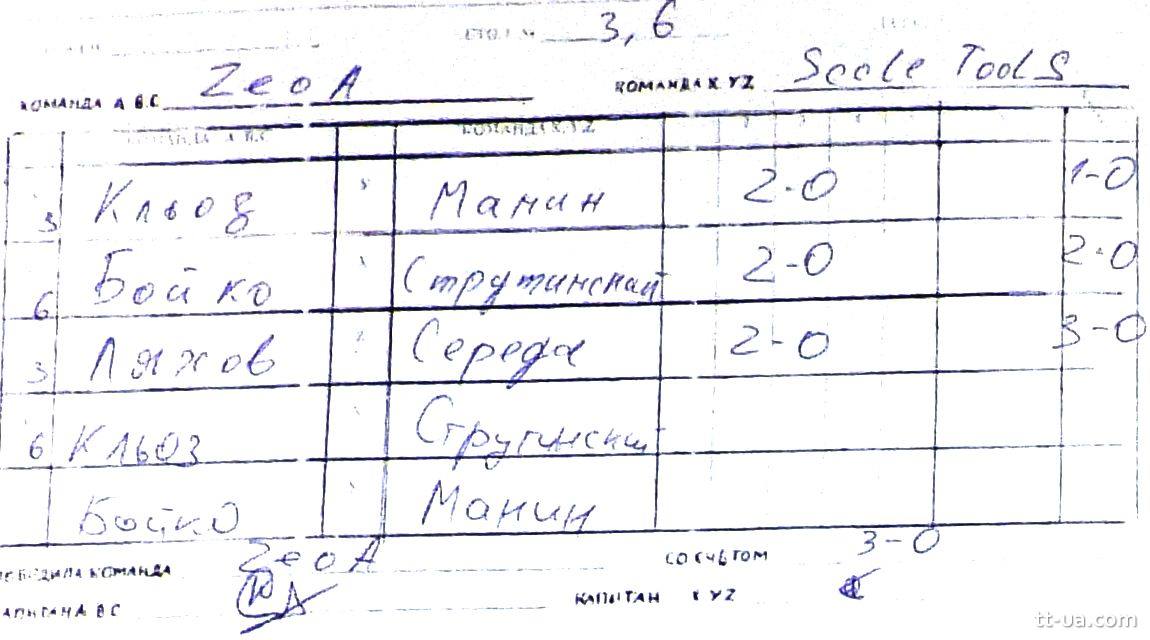 СТОЛ № 3, 6
КОМАНДА А В.С. ZeoA КОМАНДА X YZ Scale Tools
КОМАНДА А В.С. КОМАНДА X.Y.Z
3 Кльоз Манин 2-0 1-0
6 Бойко Струтинский 2-0 2-0
3 Ляхов Середа 2-0 3-0
6 Кльоз Струтинский
Бойко Манин
ПОБЕДИЛА КОМАНДА ZeoA СО СЧЁТОМ 3-0
КАПИТАН А ВС КАПИТАН X YZ
tt-ua.com